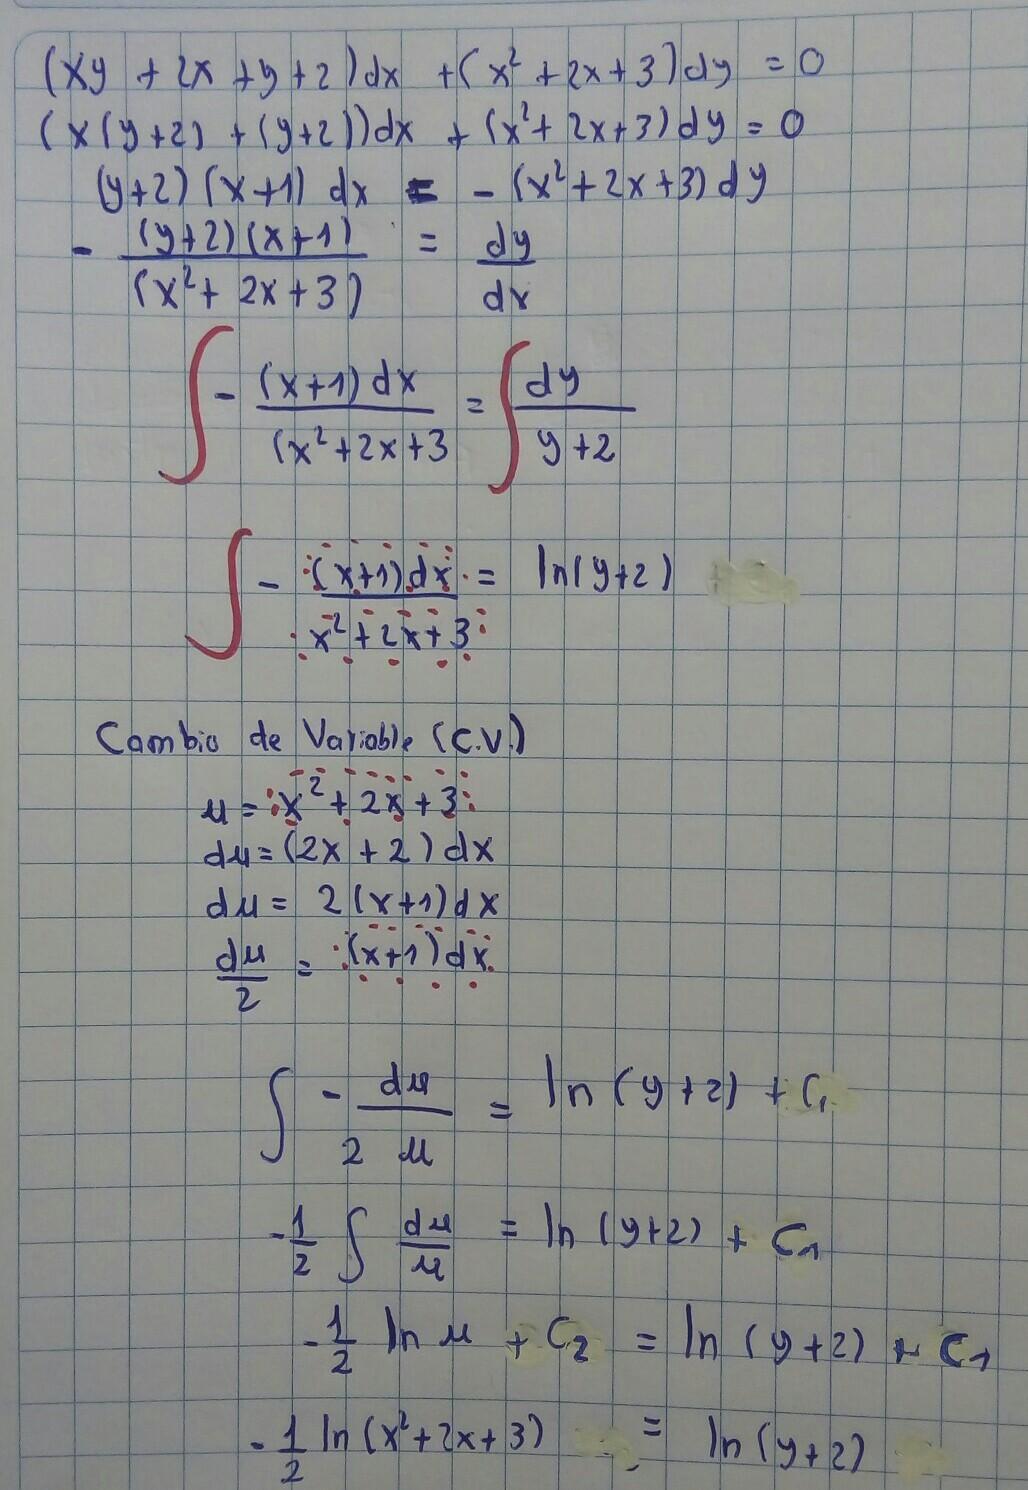 (xy + 2x + y + 2) dx + (x² + 2x + 3) dy = 0
(x(y+2) + (y+2)) dx + (x² + 2x + 3) dy = 0
(y+2) (x+1) dx = - (x² + 2x + 3) dy
- (y+2)(x+1) / (x² + 2x + 3) = dy / dx
∫ - (x+1) dx / (x² + 2x + 3 = ∫ dy / y+2
∫ - (x+1) dx / x² + 2x + 3 = ln(y+2)
Cambio de Variable (C.V.)
u = x² + 2x + 3
du = (2x + 2) dx
du = 2(x+1) dx
du / 2 = (x+1) dx
∫ - du / 2 u = ln (y+2) + C₁
- 1/2 ∫ du / u = ln (y+2) + C₁
- 1/2 ln u + C₂ = ln (y+2) + C₁
- 1/2 ln (x² + 2x + 3) = ln (y+2)